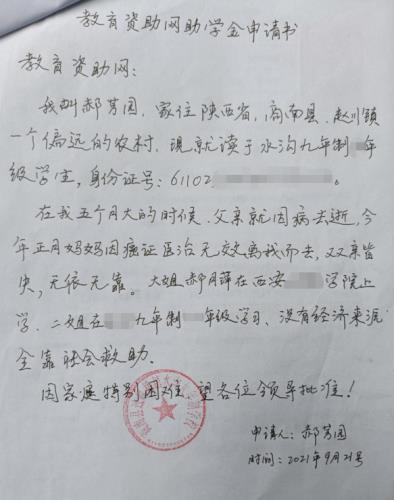 教育资助网助学金申请书
教育资助网:
我叫郝芳园,家住陕西省,商南县.赵川镇
一个偏远的农村,现就读于水沟九年制年
级学生,身份证号:61102。
在我五个月大的时候.父亲就因病去逝,今
年正月妈妈因癌证医治无效离我而去,双亲皆
失,无依无靠。大姐郝月萍在西安学院上
学.二姐在九年制年级学习、没有经济来源
全靠社会救助.
因家庭特别困难,望各位领导批准!
申请人:郝芳园
时间:2021年9月21号